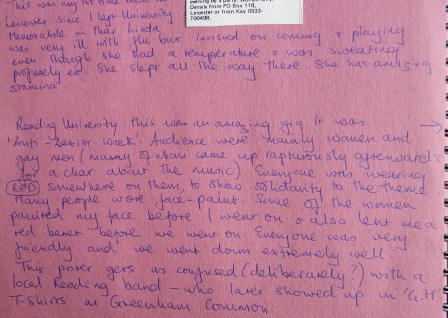 This was my 1st time back in
Leicester since I left University
Memorable in that Linda
was very ill with flu but insisted on coming & playing
even though she had a temperature & was sweating
profusely etc. She slept all the way there. She has amazing
stamina.
Details from PO Box 118,
Leicester or from Kay 0533-
700498.
Reading University: this was an amazing gig. It was
'Anti-Sexist Week'. Audience were mainly women and
gay men (many of whom came up rapturously afterwards
for a chat about the music) Everyone was wearing
RED somewhere on them, to show solidarity to the theme.
Many people wore face-paint. Some of the women
painted my face before I went on & also lent me a
red beret before we went on. Everyone was very
friendly and we went down extremely well.
This poster gets us confused (deliberately?) with a
local Reading band - who later showed up in 'G.M.'
T-shirts at Greenham Common.